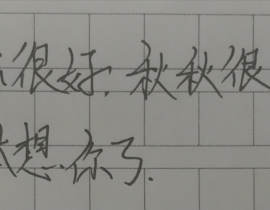 很好.秋秋很
想你了.